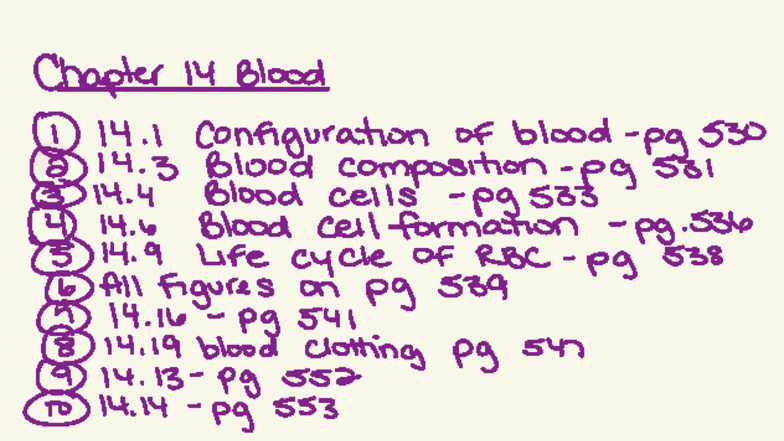 Chapter 14 Blood
1 14.1 Configuration of blood - pg 530
2 14.3 Blood composition - pg 531
3 14.4 Blood cells - pg 533
4 14.6 Blood cell formation - pg. 536
5 14.9 Life cycle of RBC - pg 538
6 All figures on pg 539
7 14.16 - pg 541
8 14.19 blood clotting pg 547
9 14.13 - pg 552
10 14.14 - pg 553